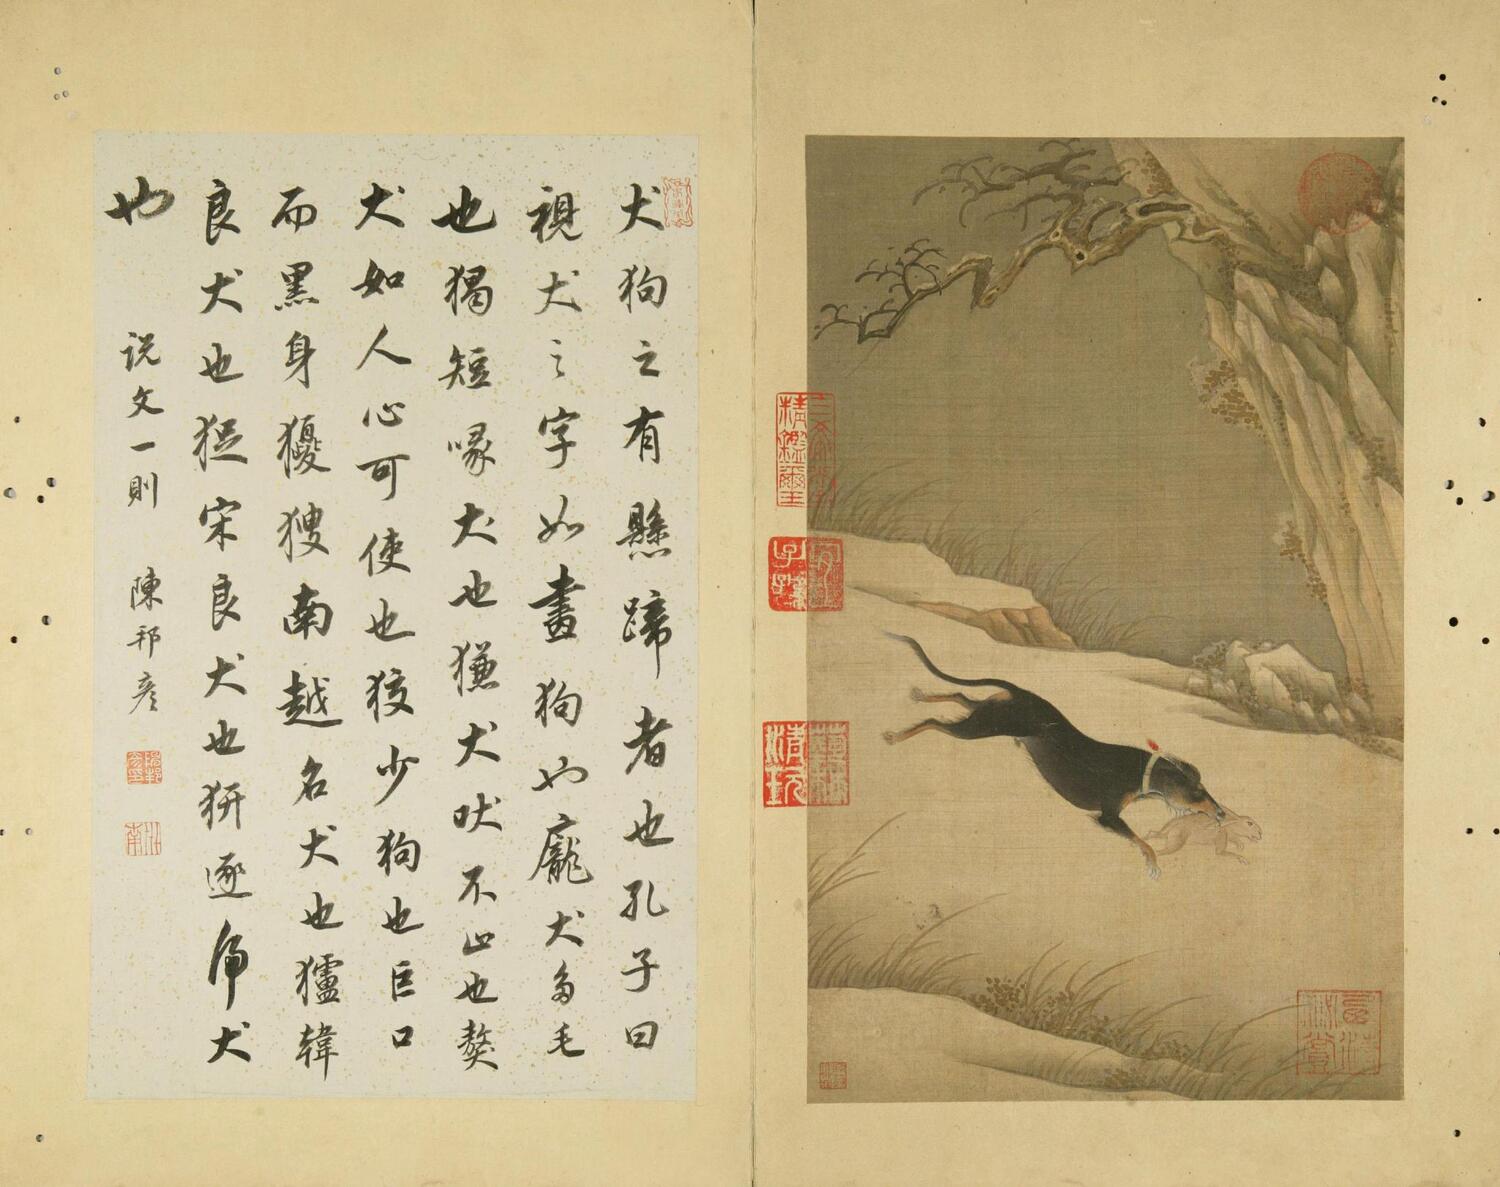 犬狗之有懸蹄者也孔子曰
視犬之字如畫狗也龐犬多毛
也猲短喙犬也獫犬吠不止也獒
犬如人心可使也狡少狗也巨口
而黑身獶獀南越名犬也獹韓
良犬也猣宋良犬也猏逐虎犬
也
说文一則 陳邦彥
三希堂精鑑璽
宜子孫